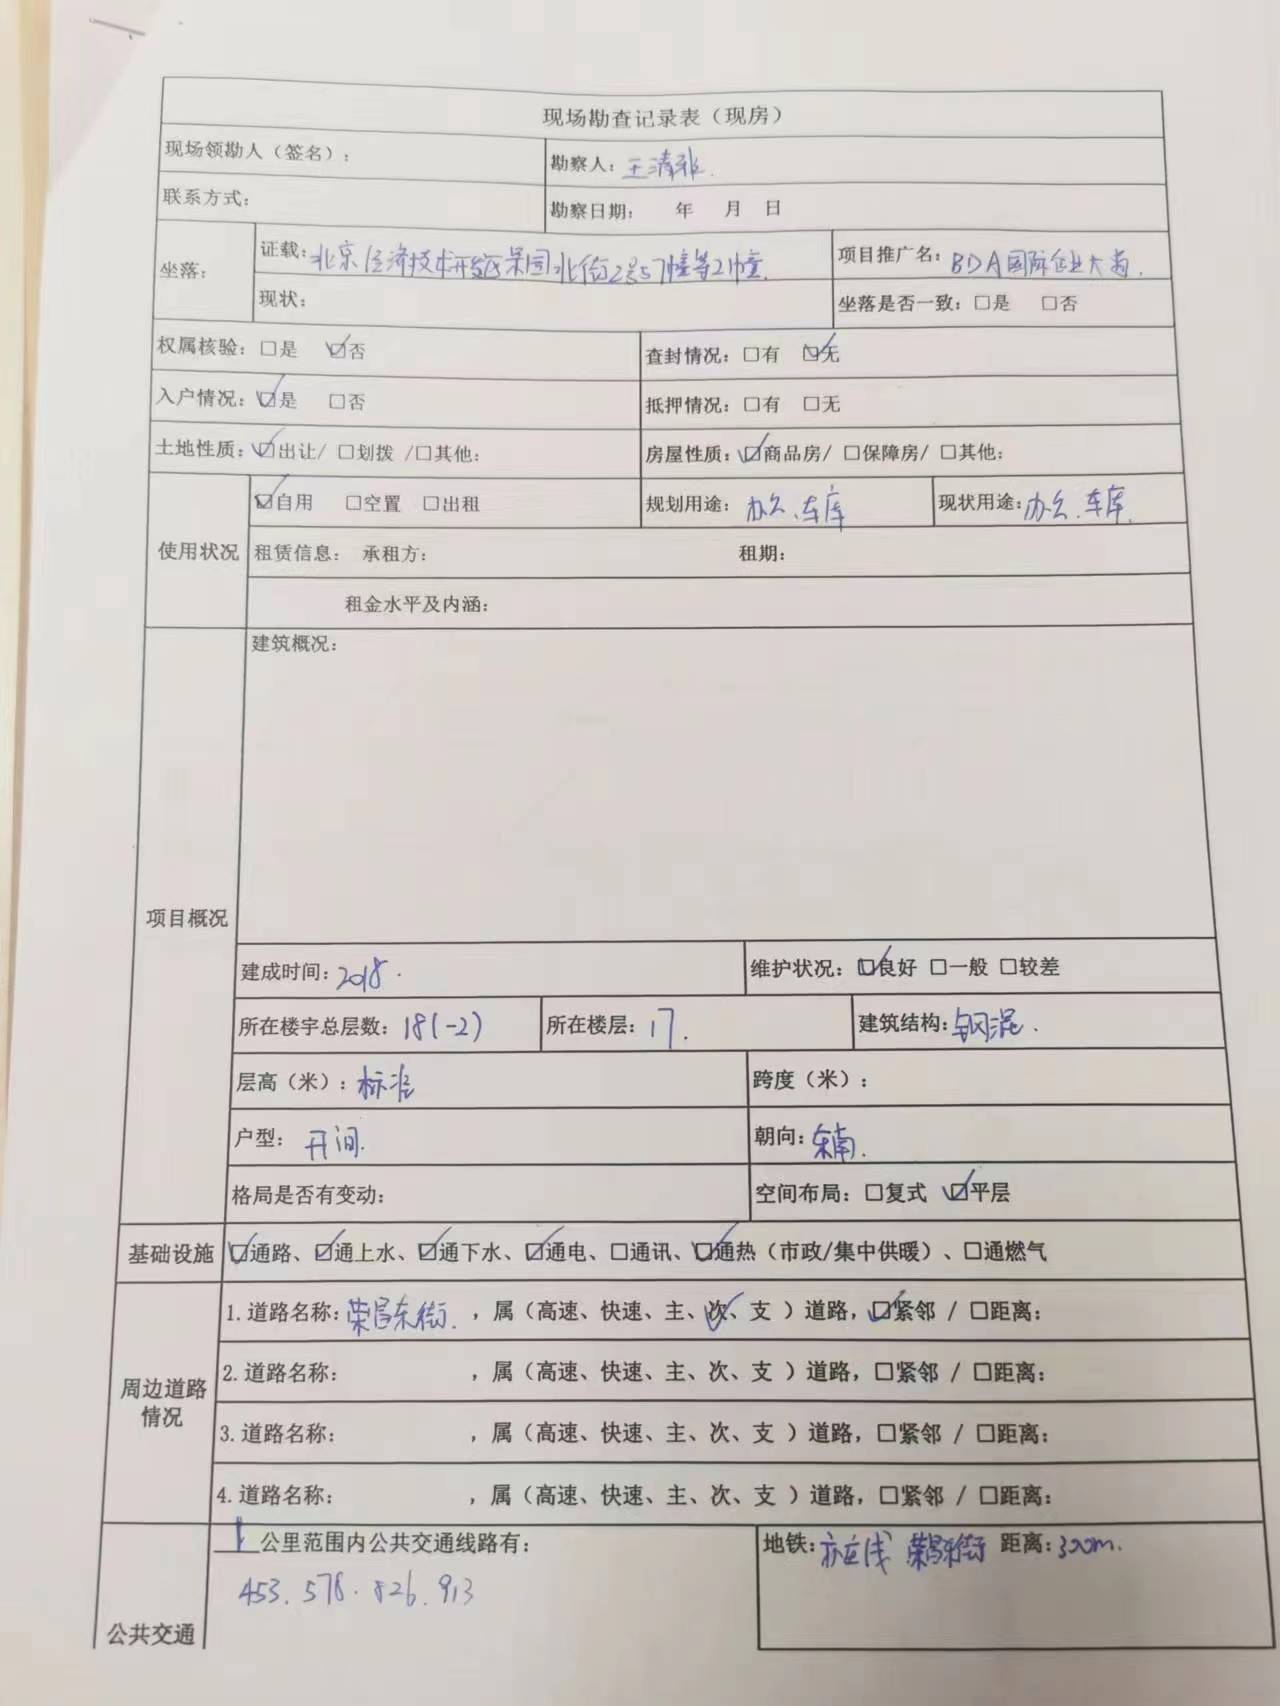 现场勘查记录表（现房）
现场领勘人（签名）： 勘察人：王清雅.
联系方式： 勘察日期： 年 月 日
坐落： 证载：北京经济技术开发区荣园北街2号57幢等2幢. 项目推广名：BDA国际企业大道.
现状： 坐落是否一致：□是 □否
权属核验：□是 ☑否 查封情况：□有 ☑无
入户情况：☑是 □否 抵押情况：□有 □无
土地性质：☑出让/ □划拨 /□其他： 房屋性质：☑商品房/ □保障房/ □其他：
使用状况 ☑自用 □空置 □出租 规划用途：办公、车库 现状用途：办公、车库.
租赁信息： 承租方： 租期：
租金水平及内涵：
项目概况 建筑概况：
建成时间：2018. 维护状况：☑良好 □一般 □较差
所在楼宇总层数：18(-2) 所在楼层：17. 建筑结构：钢混.
层高（米）：标准 跨度（米）：
户型：开间. 朝向：东南.
格局是否有变动： 空间布局：□复式 ☑平层
基础设施 ☑通路、☑通上水、☑通下水、☑通电、□通讯、☑通热（市政/集中供暖）、□通燃气
周边道路情况 1.道路名称：荣昌东街. ，属（高速、快速、主、次✓、支 ）道路，☑紧邻 / □距离：
2.道路名称： ，属（高速、快速、主、次、支 ）道路，□紧邻 / □距离：
3.道路名称： ，属（高速、快速、主、次、支 ）道路，□紧邻 / □距离：
4.道路名称： ，属（高速、快速、主、次、支 ）道路，□紧邻 / □距离：
公共交通 1公里范围内公共交通线路有： 地铁：亦庄线 荣昌东街 距离：300m.
453. 578. 826. 913